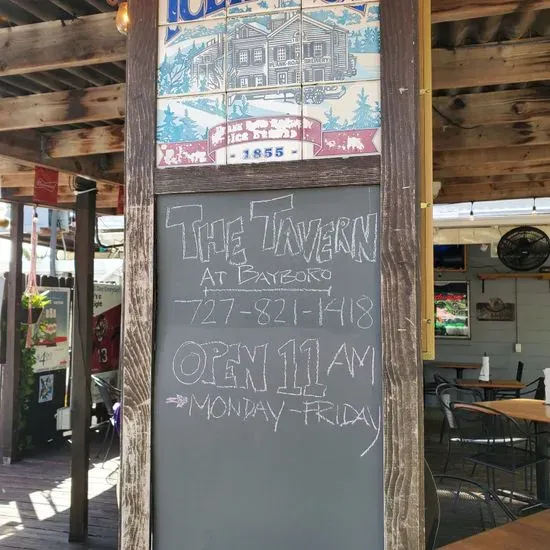 - 1855 -
THE TAVERN
AT BAYBORO
727-821-1418
OPEN 11 AM
MONDAY-FRIDAY